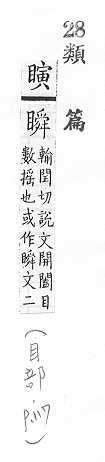 28類篇
瞚瞬
輸閏切說文開闔目
數搖也或作瞬文二
(目部, p.117)